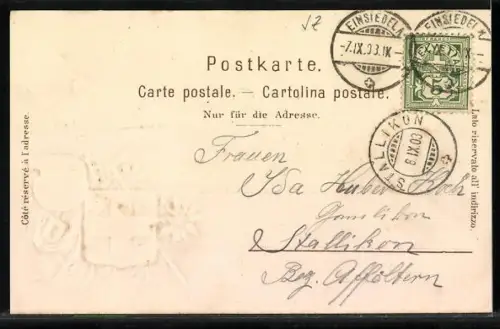 JZ
EINSIEDELN
-7.IX.03.IX-
EINSIEDELN
5
Postkarte.
Carte postale. — Cartolina postale.
Nur für die Adresse.
STALLIKON
8.IX.03
Côté réservé à l'adresse.
Lato riservato all' indirizzo.
Frauen
Ida Huber Hoch
Stallikon
Bez. Affoltern